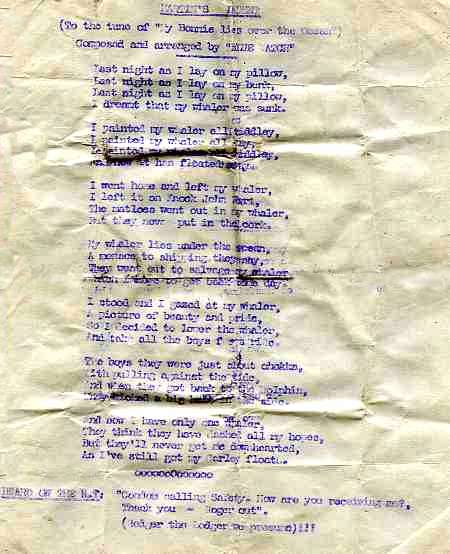 LAMENT
(To the tune of "My Bonnie lies over the Ocean")
Composed and arranged by WATCH"
Last night as I lay on my pillow,
Last night as I lay on my bunk,
Last night as I lay on my pillow,
I dreamt that my whaler was sunk.
I painted my whaler all tiddley,
I painted my whaler all
I painted my whaler tiddley,
it has floated
I went home and left my whaler,
I left it on Knock John
The matloes went out in my whaler,
But they now put in the cork.
My whaler lies under the ocean,
A menace to shipping they say,
They went out to salvage my whaler
to get back one day.
I stood and I gazed at my whaler,
A picture of beauty and pride,
So I decided to lower the whaler,
And take all the boys f a ride.
The boys they were just about chokka,
With pulling against the tide,
And when they got back to the Dolphin,
a big
And now I have only one whaler,
They think they have dashed all my hopes,
But they'll never get me downhearted,
As I've still got my Carley floats.
ooooooOoooooo
HEARD ON THE R.T. "Condes calling Safety. How are you receiving me?,
Thank you - Roger out".
(Rodger the Lodger we presume)!!!